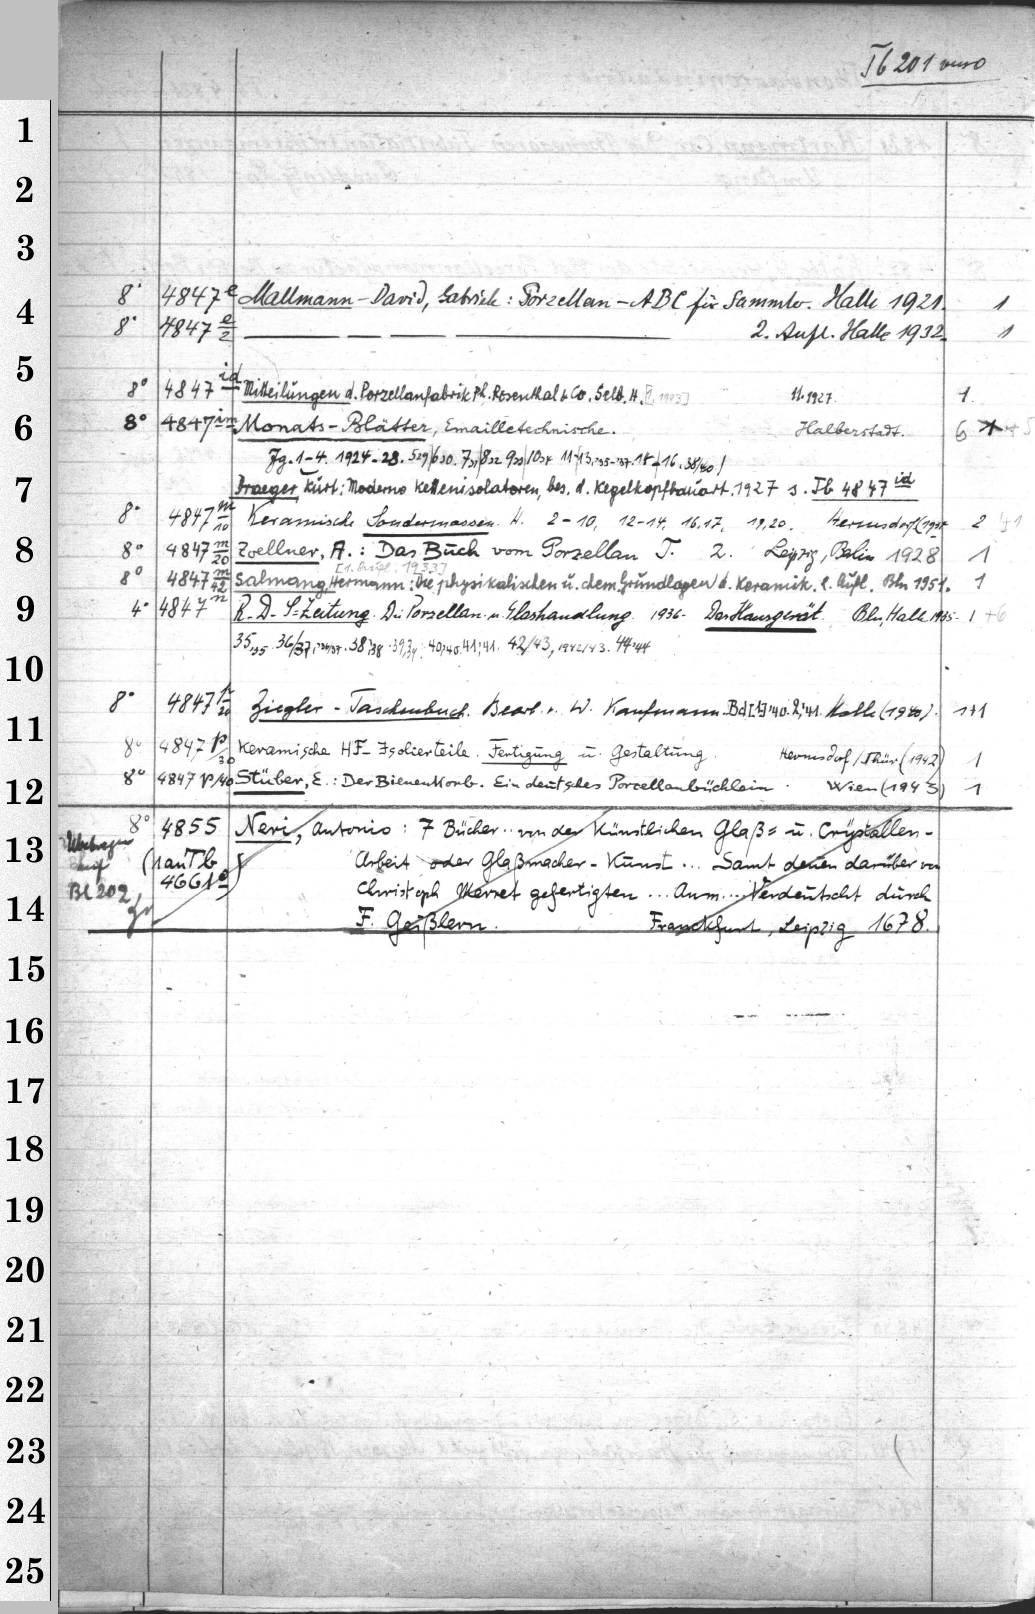 Tb 201 verso
1
2
3
4
8° 4847 e Mallmann-David, Gabriele: Porzellan-ABC für Sammler. Halle 1921. 1
8° 4847 e/2 — — — — 2. Aufl. Halle 1932. 1
5
8° 4847 id Mitteilungen d. Porzellanfabrik Ph. Rosenthal & Co. Selb. H. 11.1927. 1.
6
8° 4847 im Monats-Blätter, Emailletechnische. Halberstadt. 6
Jg. 1-4. 1924-28.
7
Draeger, Kurt: Moderne Kettenisolatoren, bes. d. Kegelkopfbauart. 1927 s. Tb 4847 id
8° 4847 m/10 Keramische Sondermassen. H. 2-10, 12-14, 16.17, 19,20. Hermsdorf 2
8
8° 4847 m/20 Zoellner, A.: Das Buch vom Porzellan T. 2. Leipzig, Berlin 1928 1
[1. Aufl. 1933]
8° 4847 m/42 Salmang, Hermann: Die physikalischen u. chem. Grundlagen d. Keramik. 2. Aufl. Bln 1951. 1
9
4° 4847 n K.-D.-S-Zeitung. Die Porzellan- u. Glashandlung. 1936- Das Hausgerät Bln, Halle 1935- 1 +6
35,'35 36/37, 38,'38 39,39 40,'40. 41,'41. 42/43, 1942/43. 44,'44
10
11
8° 4847 p/20 Ziegler-Taschenbuch. Bearb. v. W. Kaufmann. Bd [1] '40. 2,'41. Halle (1940). 1+1
8° 4847 p/30 Keramische HF-Isolierteile. Fertigung u. Gestaltung. Hermsdorf/Thür (1942) 1
12
8° 4847 p/40 Stüber, E.: Der Bienenkorb. Ein deutsches Porcellanbüchlein. Wien (1943) 1
8° 4855 Neri, Antonio: 7 Bücher .. von der Künstlichen Glaß= u. Crystallen-
13
Übertragen auf Bl 202
(1 an Tb 4661 e) Arbeit oder Glaßmacher-Kunst ... Samt denen darüber von
Christoph Merret gefertigten ... Anm... Verdeutscht durch
14
F. Geißlern. Franckfurt, Leipzig 1678.
15
16
17
18
19
20
21
22
23
24
25